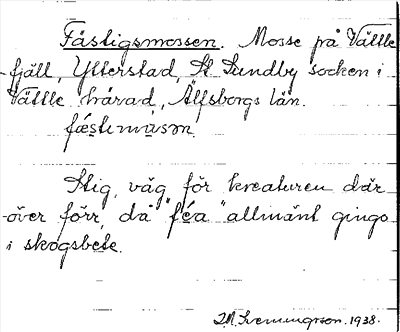 Fästigsmossen. Mosse på Vättle
fjäll, Ytterstad, St. Lundby socken i
Vättle härad, Älfsborgs län.
fæ̀stimùsɔn.
Stig, väg för kreaturen där
över förr, då "féa" allmänt gingo
i skogsbete.
1938.